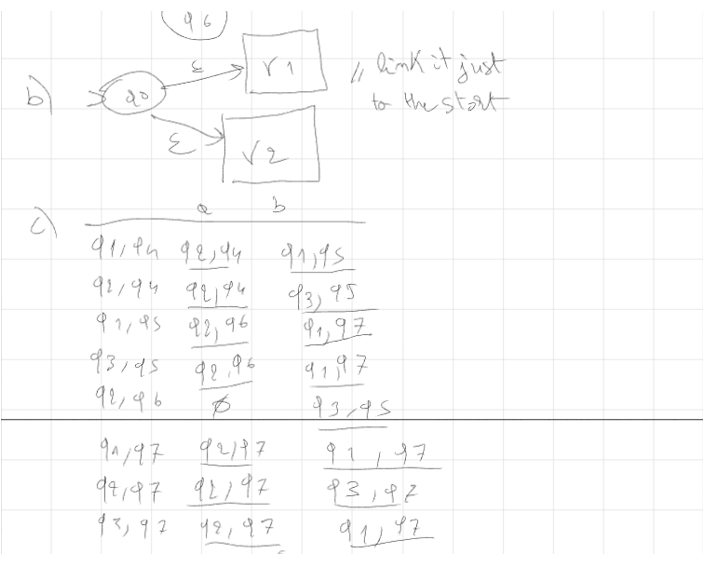 q6
b) q0 ε r1 // link it just
to the start
ε r2
c) a b
q1,q4 q2,q4 q1,q5
q2,q4 q2,q4 q3,q5
q1,q5 q2,q6 q1,q7
q3,q5 q2,q6 q1,q7
q2,q6 ∅ q3,q5
q1,q7 q2,q7 q1,q7
q2,q7 q2,q7 q3,q7
q3,q7 q2,q7 q1,q7